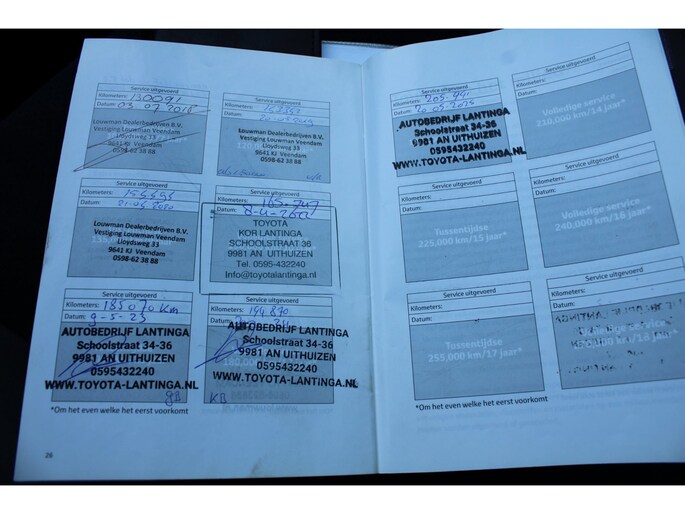 Service uitgevoerd
Kilometers: 130091
Datum: 03 07 2018
Louwman Dealerbedrijven B.V.
Vestiging Louwman Veendam
Lloydsweg 33
9641 KJ Veendam
0598-62 38 88
Service uitgevoerd
Kilometers:
Datum:
Louwman Dealerbedrijven B.V.
Vestiging Louwman Veendam
Lloydsweg 33
9641 KJ Veendam
0598-62 38 88
Service uitgevoerd
Kilometers:
Datum:
Louwman Dealerbedrijven B.V.
Vestiging Louwman Veendam
Lloydsweg 33
9641 KJ Veendam
0598-62 38 88
Service uitgevoerd
Kilometers: 165.747
Datum:
TOYOTA
KOR LANTINGA
SCHOOLSTRAAT 36
9981 AN UITHUIZEN
Tel. 0595-432240
Info@toyotalantinga.nl
Service uitgevoerd
Kilometers: 185070 Km
Datum: 9-5-23
AUTOBEDRIJF LANTINGA
Schoolstraat 34-36
9981 AN UITHUIZEN
0595432240
WWW.TOYOTA-LANTINGA.NL
Service uitgevoerd
Kilometers: 194870
Datum:
AUTOBEDRIJF LANTINGA
Schoolstraat 34-36
9981 AN UITHUIZEN
0595432240
WWW.TOYOTA-LANTINGA.NL
KB
*Om het even welke het eerst voorkomt
26
Service uitgevoerd
Kilometers:
Datum:
AUTOBEDRIJF LANTINGA
Schoolstraat 34-36
9981 AN UITHUIZEN
0595432240
WWW.TOYOTA-LANTINGA.NL
Service uitgevoerd
Kilometers:
Datum:
Volledige service
210,000 km/14 jaar*
Service uitgevoerd
Kilometers:
Datum:
Tussentijdse
225,000 km/15 jaar*
Service uitgevoerd
Kilometers:
Datum:
Volledige service
240,000 km/16 jaar*
Service uitgevoerd
Kilometers:
Datum:
Tussentijdse
255,000 km/17 jaar*
Service uitgevoerd
Kilometers:
Datum:
Volledige service
*Om het even welke het eerst voorkomt